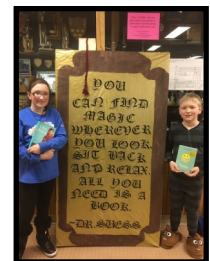 YOU
CAN FIND
MAGIC
WHEREVER
YOU LOOK.
SIT BACK
AND RELAX.
ALL YOU
NEED IS A
BOOK.
~DR. SUESS~